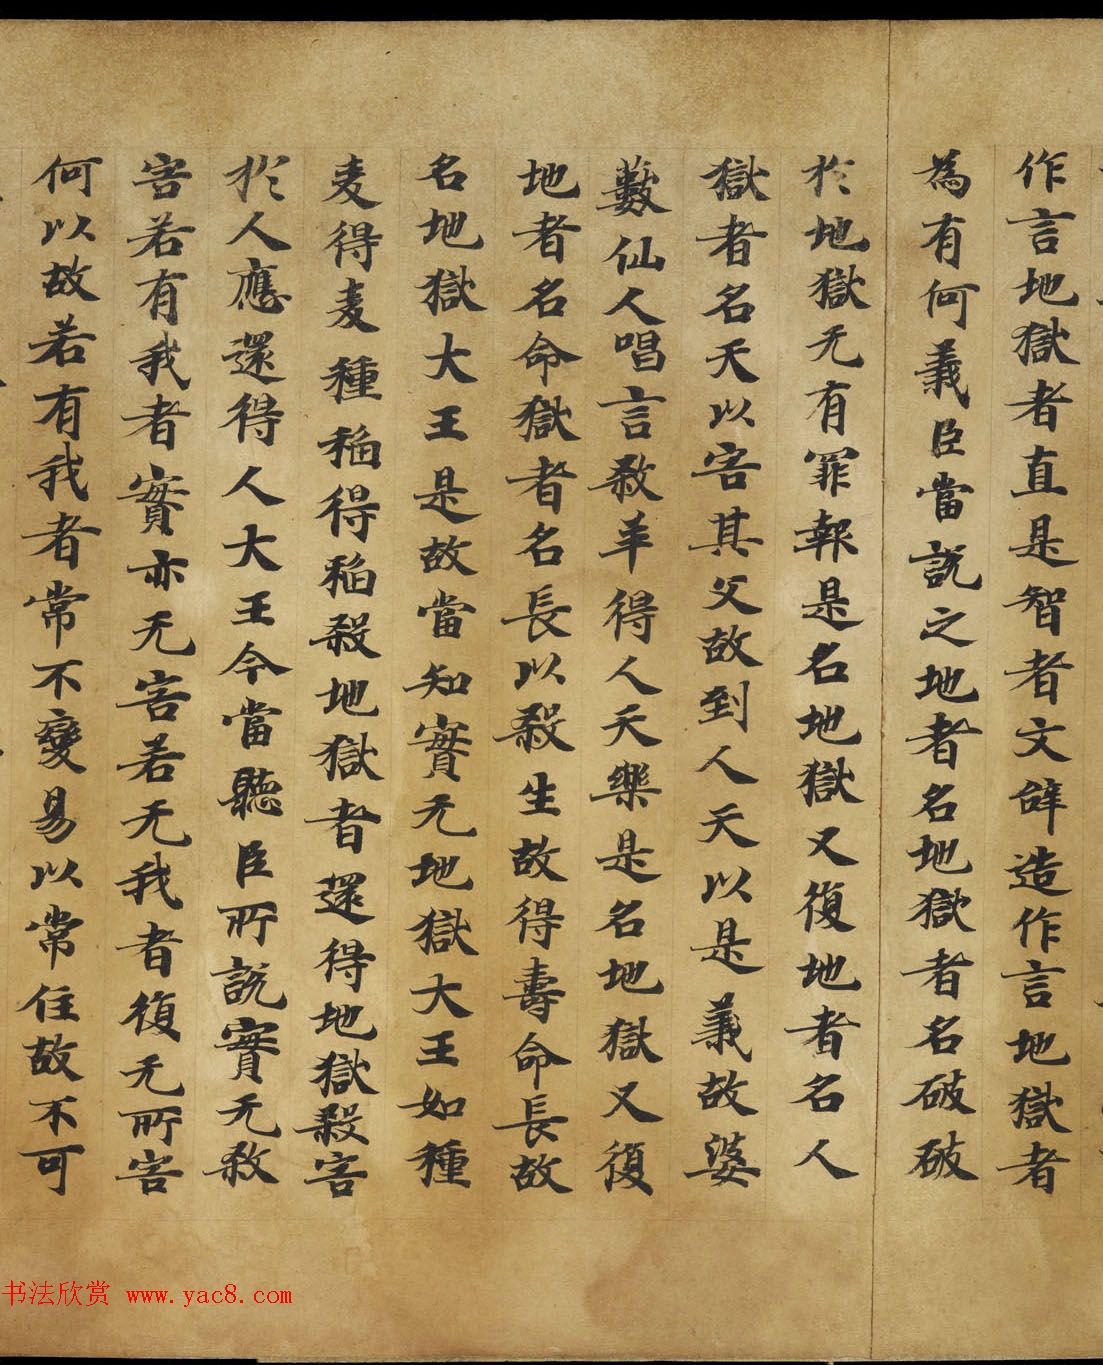 作言地獄者直是智者文辝造作言地獄者
為有何義臣當説之地者名地獄者名破破
扵地獄无有罪報是名地獄又復地者名人
獄者名天以害其父故到人天以是義故婆
藪仙人唱言煞羊得人天樂是名地獄又復
地者名命獄者名長以殺生故得壽命長故
名地獄大王是故當知實无地獄大王如種
麦得麦種稻得稻殺地獄者還得地獄殺害
扵人應還得人大王今當聽臣所説實无煞
害若有我者實亦无害若无我者復无所害
何以故若有我者常不變易以常住故不可
书法欣赏 www.yac8.com